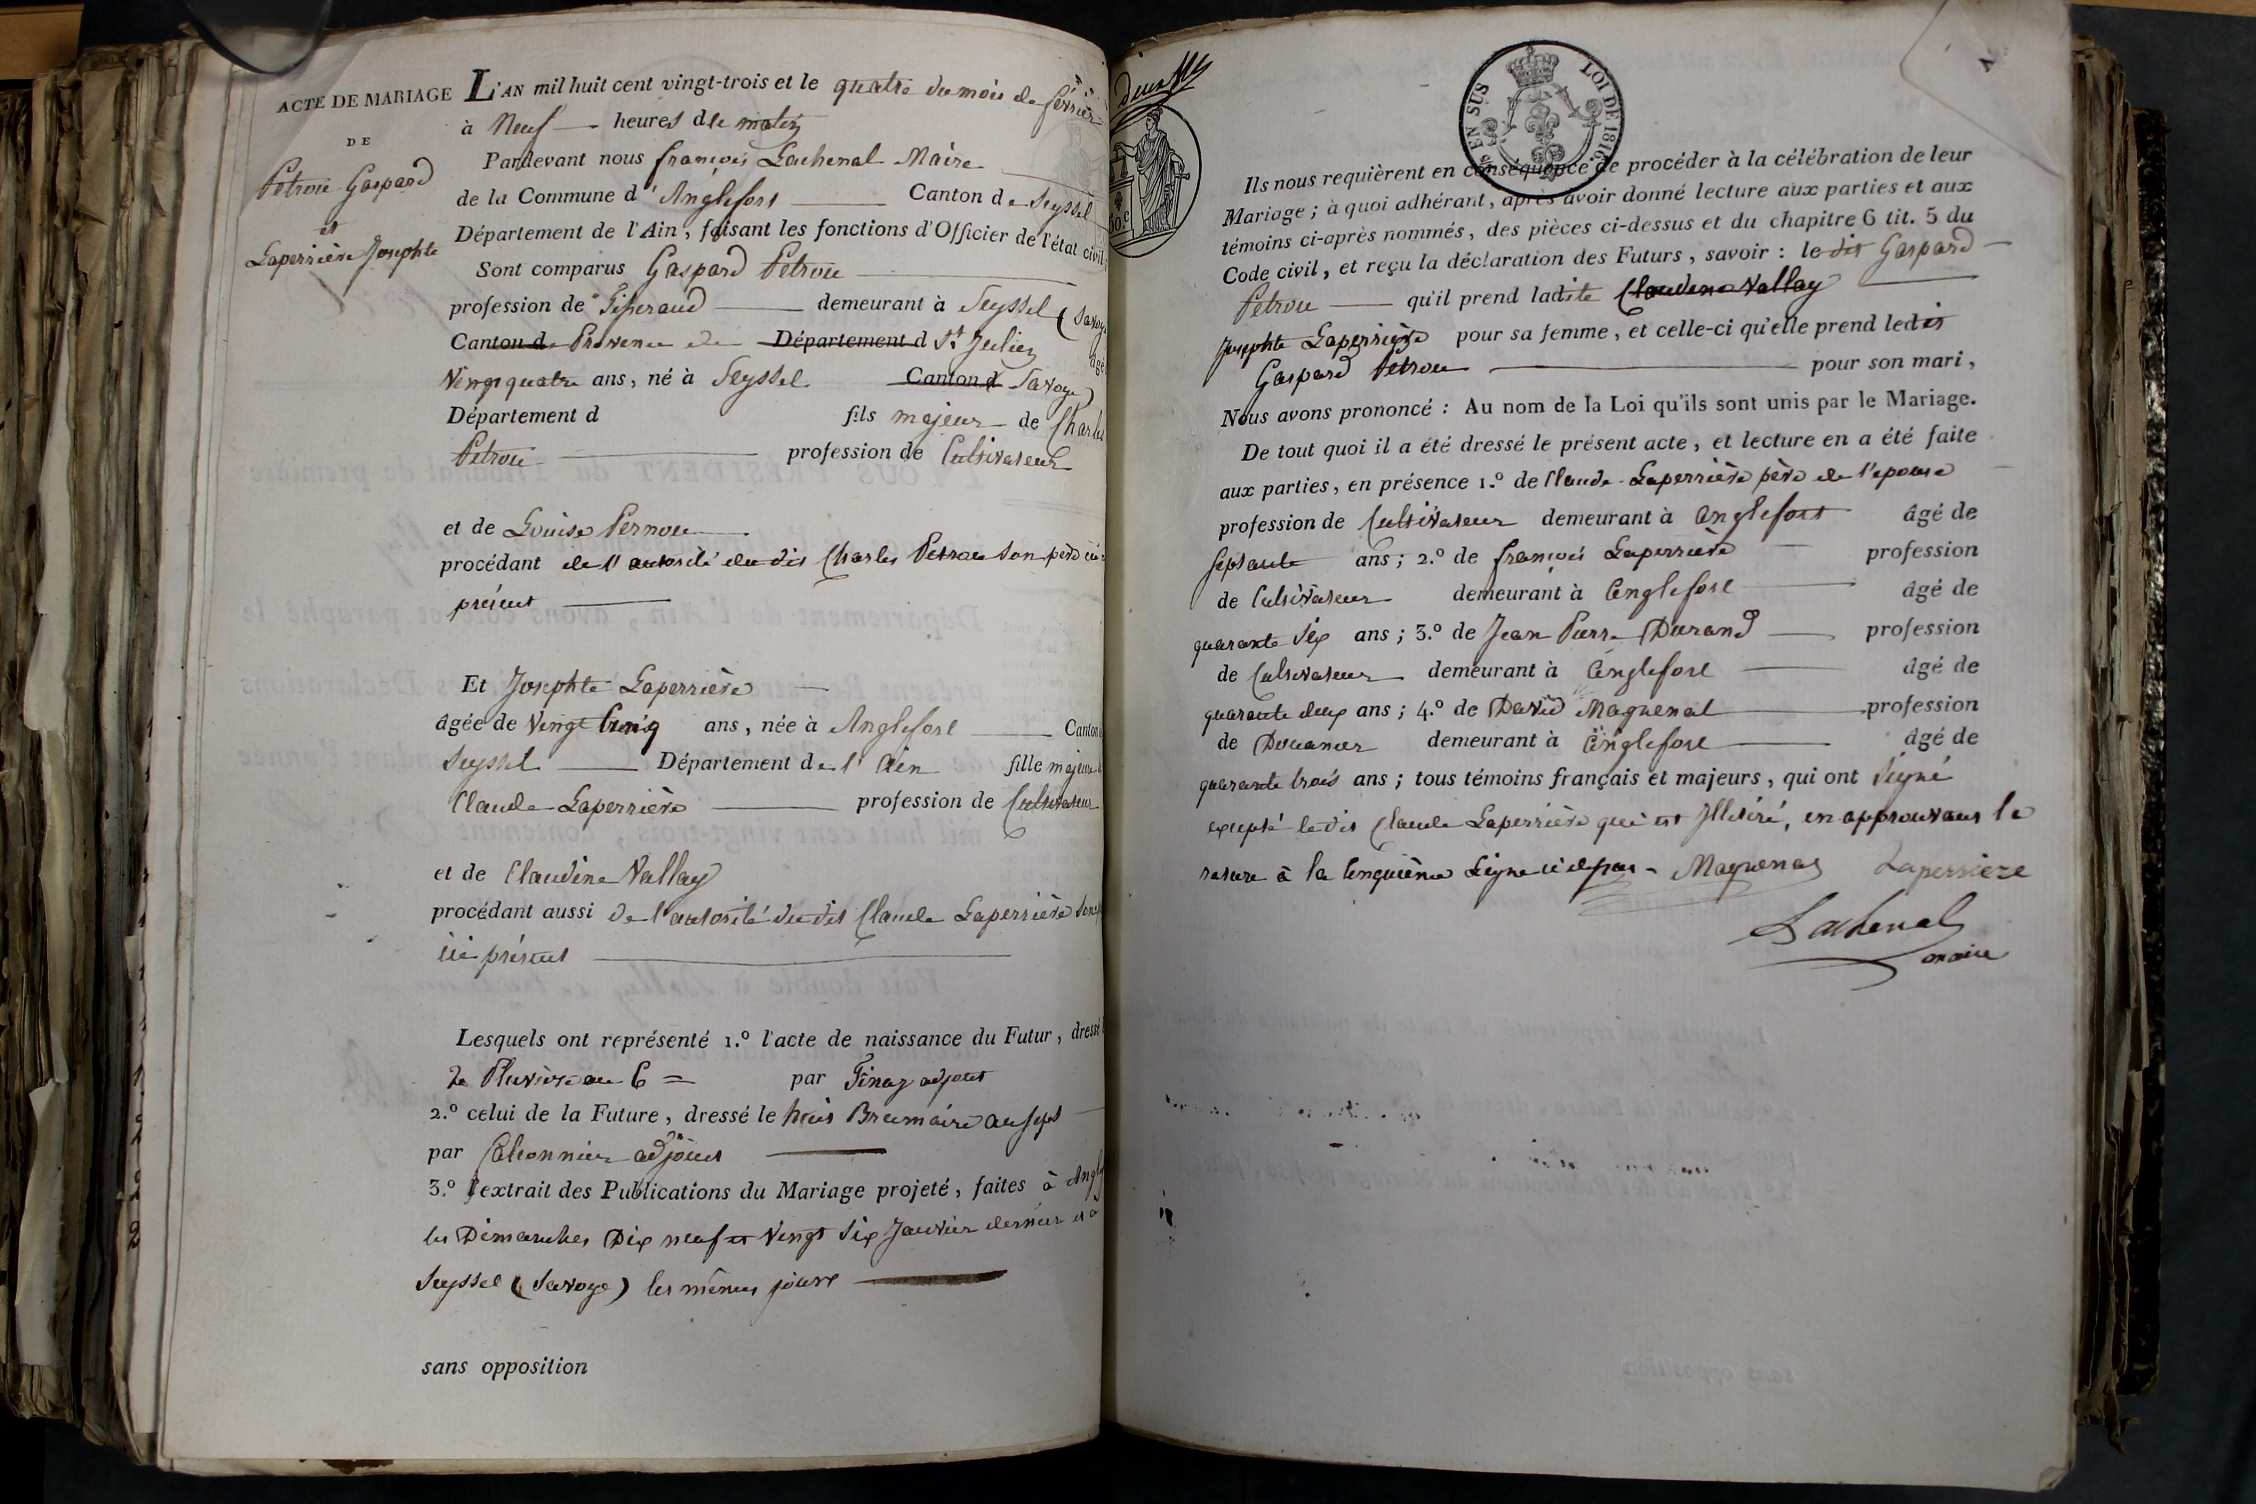 ACTE DE MARIAGE
DE
Petrou Gaspard
et
Laperrière Josephte
L'AN mil huit cent vingt-trois et le quatre du mois de février
à Neuf heures du matin
Pardevant nous françois Lachenal Maire
de la Commune d'Anglefort Canton de Seyssel
Département de l'Ain, faisant les fonctions d'Officier de l'état civil
Sont comparus Gaspard Petrou
profession de demeurant à Seyssel (Savoye
Canton de Province de Département d St Julien âgé
Vingt quatre ans, né à Seyssel Canton d Savoye)
Département d fils majeur de Charles
Petrou profession de Cultivateur
et de Louise Pernou
procédant de l'autorité du dit Charles Petrou son père ici
présent
Et Josephte Laperrière
âgée de Vingt Cinq ans, née à Anglefort Canton
Seyssel Département de l'Ain fille majeure
Claude Laperrière profession de Cultivateur
et de Claudine Vallay
procédant aussi De l'autorité du dit Claude Laperrière son
ici présent
Lesquels ont représenté 1.º l'acte de naissance du Futur, dressé
Pluviose an 6 par adjoint
2.º celui de la Future, dressé le huit Brumaire an sept
par adjoint
3.º l'extrait des Publications du Mariage projeté, faites à
les Dimanches Dix neuf et Vingt Six Janvier dernier et à
Seyssel (Savoye) les mêmes jours
sans opposition
EN SUS
LOI DE 1816.
Ils nous requièrent en conséquence de procéder à la célébration de leur
Mariage; à quoi adhérant, après avoir donné lecture aux parties et aux
témoins ci-après nommés, des pièces ci-dessus et du chapitre 6 tit. 5 du
Code civil, et reçu la déclaration des Futurs, savoir: le dit Gaspard
Petrou qu'il prend ladite Claudine Vallay
Josephte Laperrière pour sa femme, et celle-ci qu'elle prend ledit
Gaspard Petrou pour son mari,
Nous avons prononcé: Au nom de la Loi qu'ils sont unis par le Mariage.
De tout quoi il a été dressé le présent acte, et lecture en a été faite
aux parties, en présence 1.º de Claude Laperrière père de l'epouse
profession de Cultivateur demeurant à Anglefort âgé de
septante ans; 2.º de françois Laperrière profession
de Cultivateur demeurant à Anglefort âgé de
quarante Six ans; 3.º de Jean Pierre Durand profession
de Cultivateur demeurant à Anglefort âgé de
quarante deux ans; 4.º de David Magnenat profession
de Douanier demeurant à Anglefort âgé de
quarante trois ans; tous témoins français et majeurs, qui ont Signé
excepté le dit Claude Laperrière qui est Illitéré, en approuvant la
rature à la Cinquième Ligne ci dessus Magnenat Laperrieze
Lachenal
maire